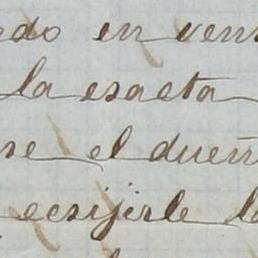 do en ven
la esacta
se el dueñ
ecsijirle l